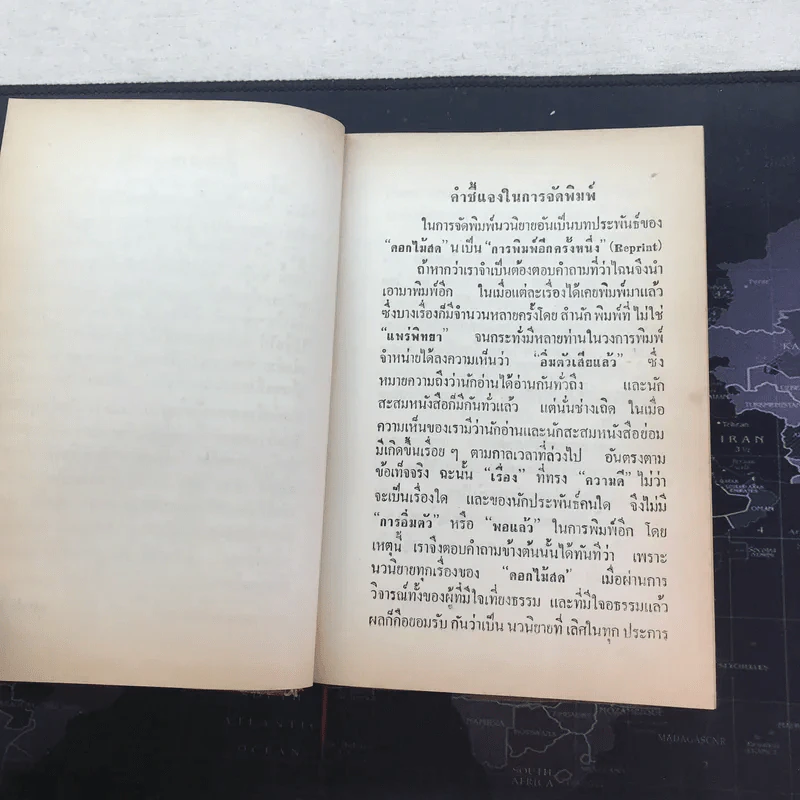 คำชี้แจงในการจัดพิมพ์
ในการจัดพิมพ์นวนิยายอันเป็นบทประพันธ์ของ
“ดอกไม้สด” น เป็น “การพิมพ์อีกครั้งหนึ่ง” (Reprint)
ถ้าหากว่าเราจำเป็นต้องตอบคำถามที่ว่าไฉนจึงนำ
เอามาพิมพ์อีก ในเมื่อแต่ละเรื่องได้เคยพิมพ์มาแล้ว
ซึ่งบางเรื่องก็มีจำนวนหลายครั้งโดย สำนัก พิมพ์ที่ ไม่ใช่
“แพร่พิทยา” จนกระทั่งมีหลายท่านในวงการพิมพ์
จำหน่ายได้ลงความเห็นว่า “อิ่มตัวเสียแล้ว” ซึ่ง
หมายความถึงว่านักอ่านได้อ่านกันทั่วถึง และนัก
สะสมหนังสือก็มีกันทั่วแล้ว แต่นั่นช่างเถิด ในเมื่อ
ความเห็นของเรามีว่านักอ่านและนักสะสมหนังสือย่อม
มีเกิดขึ้นเรื่อย ๆ ตามกาลเวลาที่ล่วงไป อันตรงตาม
ข้อเท็จจริง ฉะนั้น “เรื่อง” ที่ทรง “ความดี” ไม่ว่า
จะเป็นเรื่องใด และของนักประพันธ์คนใด จึงไม่มี
“การอิ่มตัว” หรือ “พอแล้ว” ในการพิมพ์อีก โดย
เหตุนี้ เราจึงตอบคำถามข้างต้นนั้นได้ทันทีว่า เพราะ
นวนิยายทุกเรื่องของ “ดอกไม้สด” เมื่อผ่านการ
วิจารณ์ทั้งของผู้ที่มีใจเที่ยงธรรม และที่มีใจอธรรมแล้ว
ผลก็คือยอมรับ กันว่าเป็น นวนิยายที่ เลิศในทุก ประการ
IRAN
OMAN
SEYCHELLES
MADAGASCAR
ATLANTIC
OCEAN
SOUTH
AFRICA